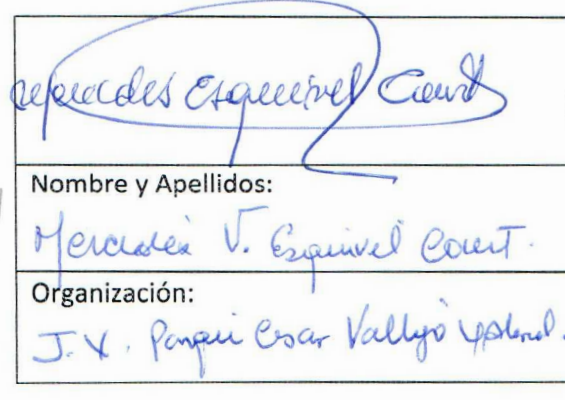 Mercedes Esquivel Court
Nombre y Apellidos:
Mercedes V. Esquivel Court.
Organización:
J.V. Parque Cesar Vallejo